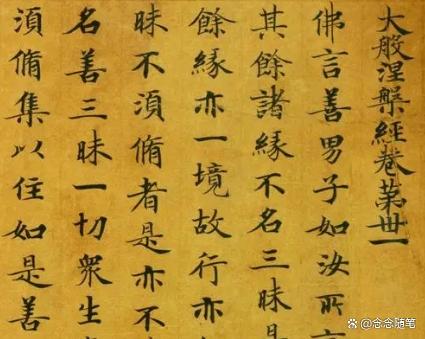 大般涅槃經卷第卅一
佛言善男子如汝所言
其餘諸緣不名三昧是
餘緣亦一境故行亦
昧不須脩者是亦不
名善三昧一切眾生
須脩集以住如是善
念念随笔